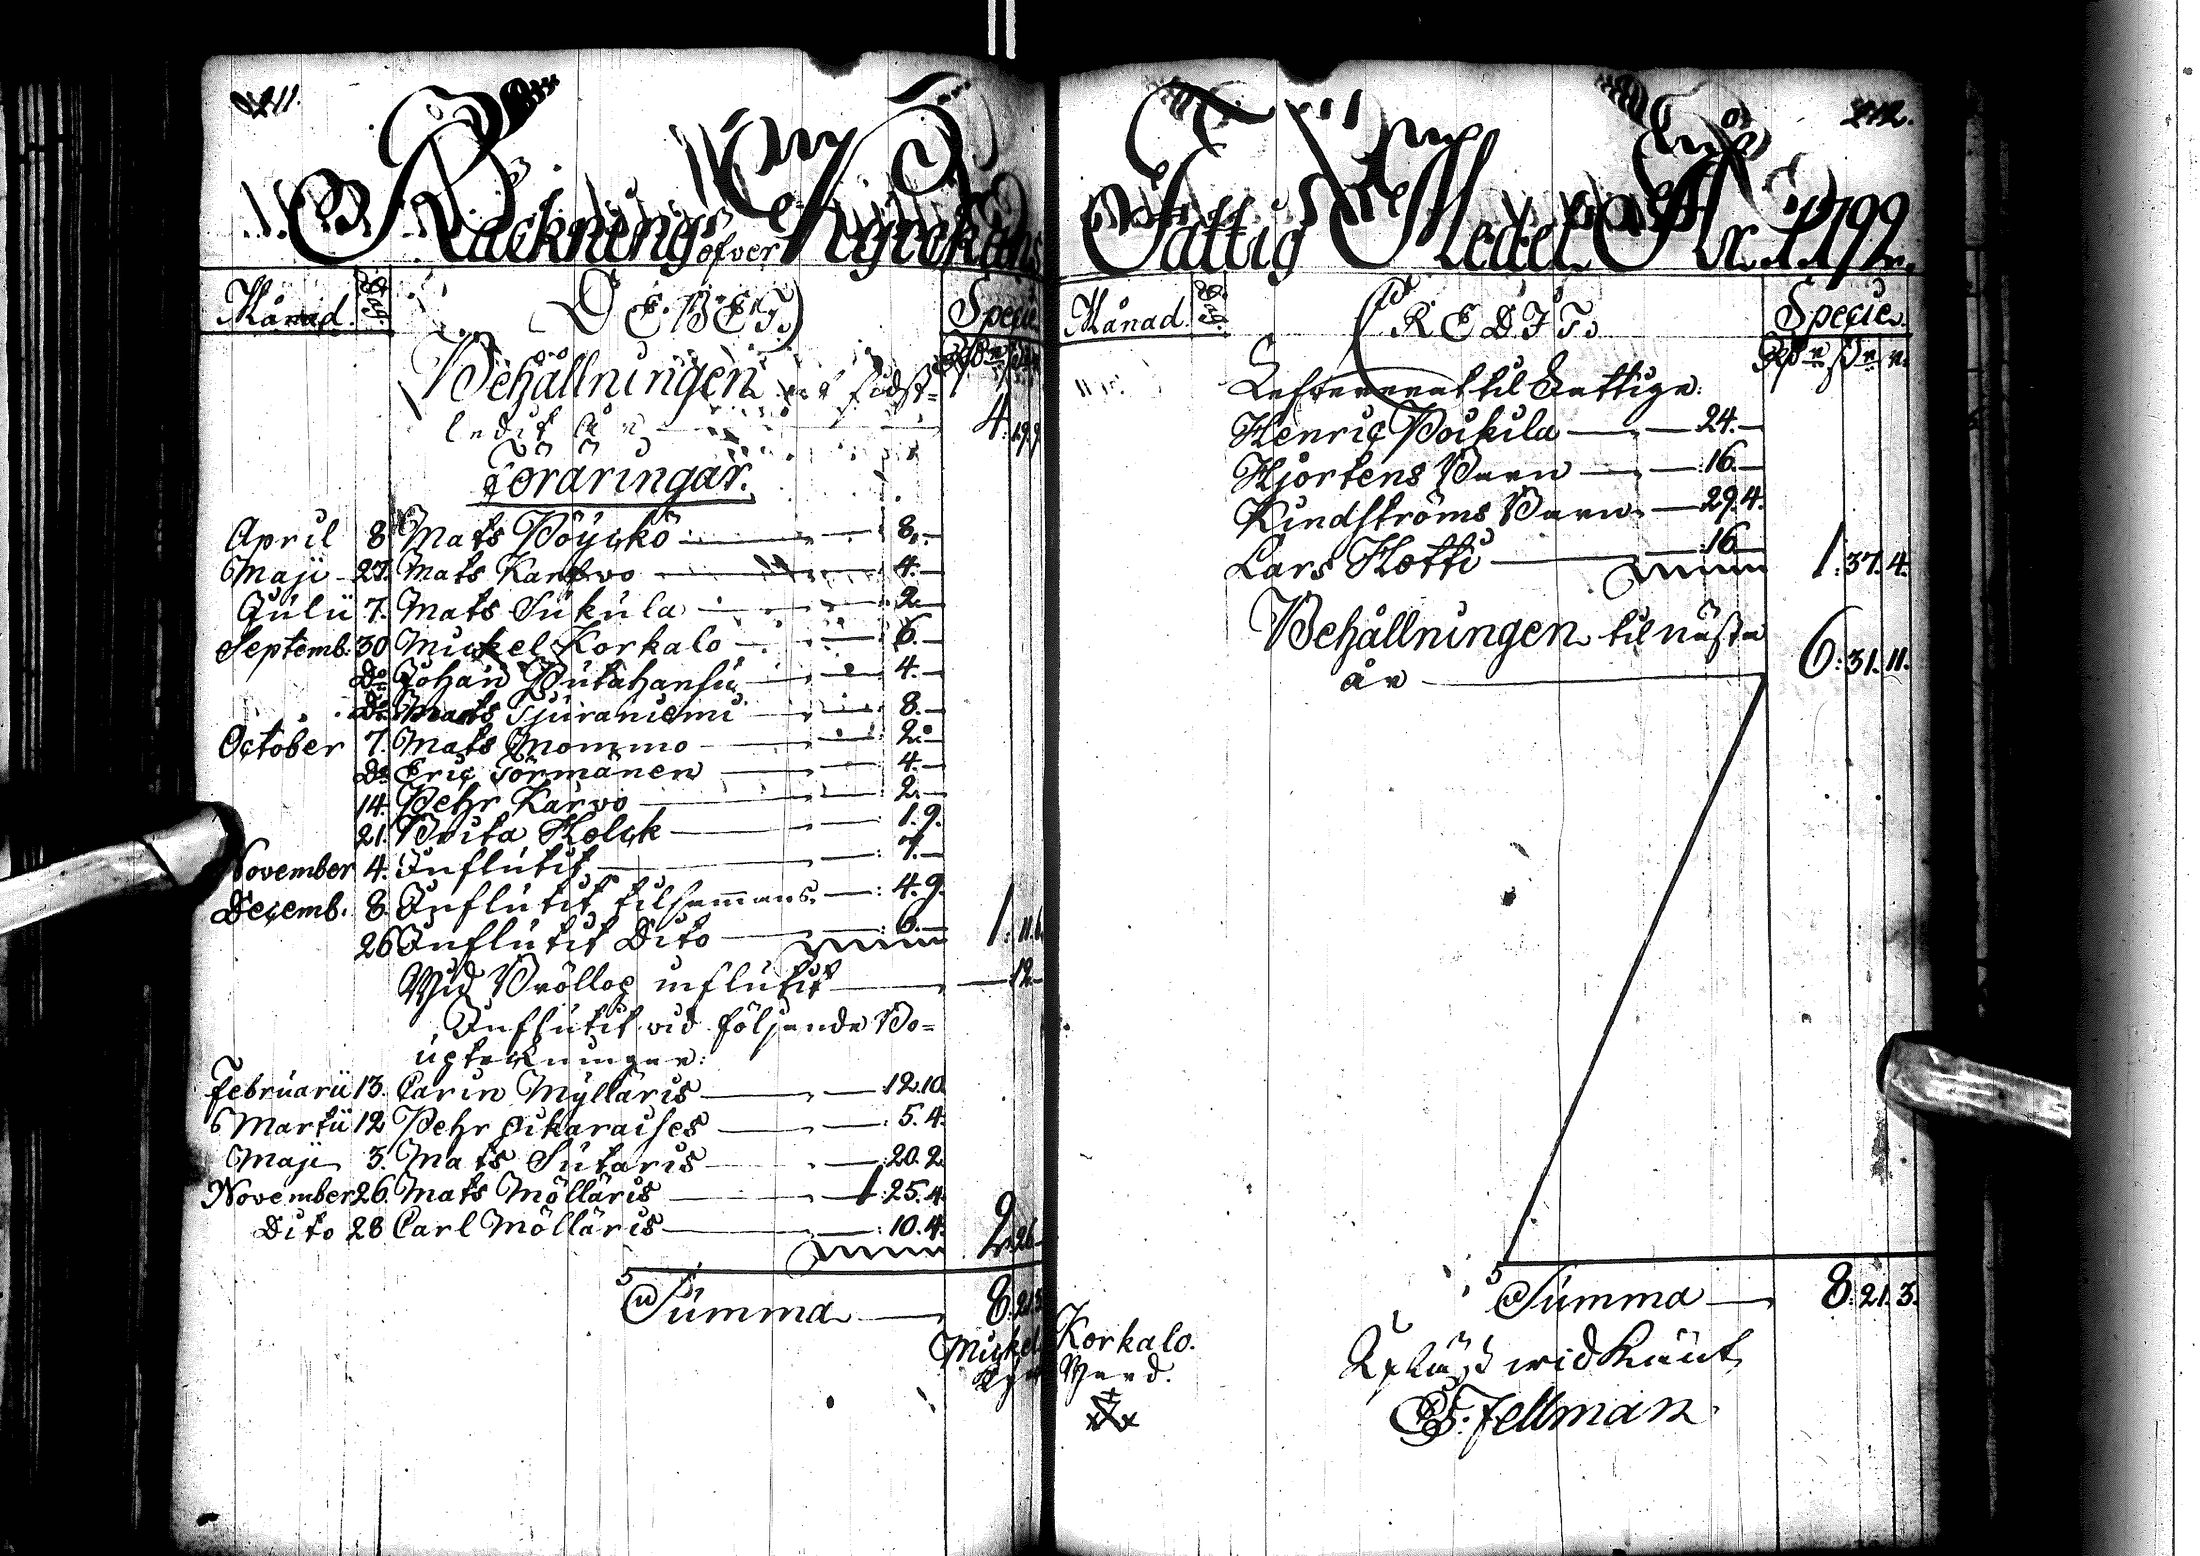 211.
Räckning öfver Kyrckans
Månad. Dag. DEBET. Specie
Behållningen sidst-
ledit år 4. 19. 9
Föräringar.
April 8 Mats Pöyckö 8.
Maji 27. Mats Karfvo 4.
Julii 7. Mats Sukula 2
Septemb. 30 Mickel Korkalo 6.
Do Johan Putahansu 4.
Do Mats Tjuraniemi 8.
October 7. Mats Mommo 2.
Do Eric Törmänen 4.
14. Pehr Karvo 2.
21. Brita Holck 1. 9.
November 4. Influtit 7.
Decemb. 8. Influtit tilsammans. 4. 9.
26 Influtit Dito 6. 1. 11. 6
Wid Bröllop influtit 12
Influtit vid följande Bo-
upteckningar:
Februarii 13. Carin Mylläris 12. 10.
Martii 12 Pehr Pikaraises 5. 4.
Maji 3. Mats Sutaris 20. 2
November 26. Mats Mölläris 1. 25. 4.
Dito 28 Carl Mölläris 10. 4. 2. 26
Summa 8. 21. 3
212.
Fattig Medel År 1792.
Månad. Dag. CREDIT. Specie.
Lefvererat til Fattiga:
Henric Poikila 24.
Hjortens Barn 16.
Kindströms Barn 29. 4.
Lars Hotti 16 1. 37. 4.
Behållningen til nästa
år 6. 31. 11.
Summa 8. 21. 3.
Mickel Korkalo.
Värd.
Upläst wid
E. Fellman